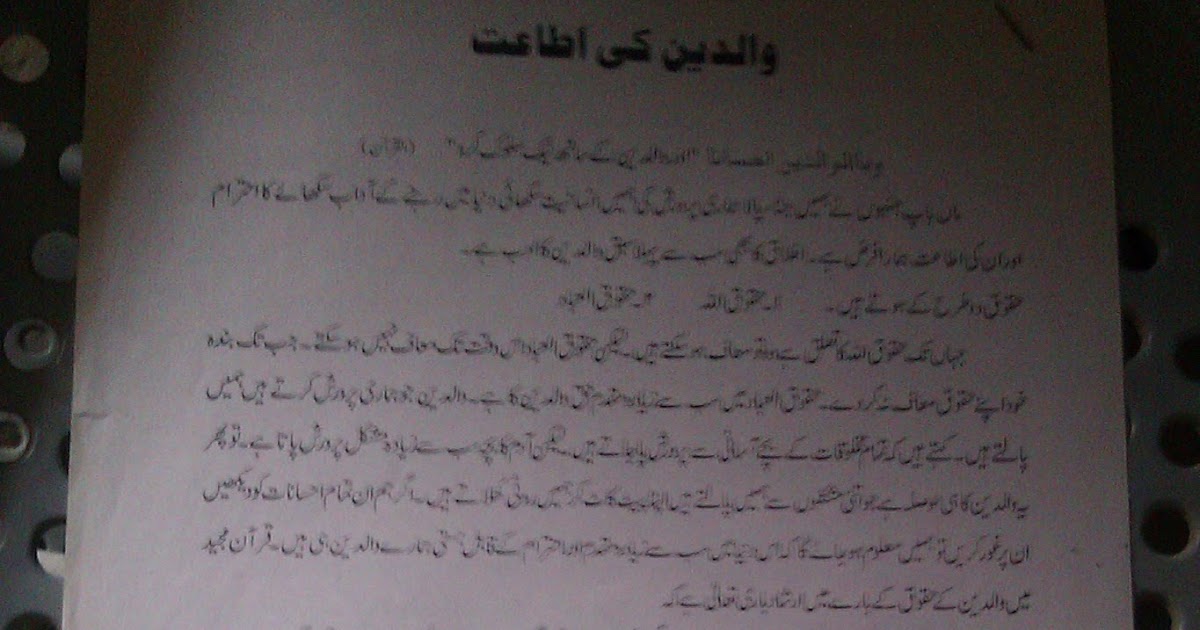 والدین کی اطاعت
وبالوالدین احسانا "اور والدین کے ساتھ نیک سلوک کرو" (القرآن)
ماں باپ جنہوں نے ہمیں جنا، پالا ہماری پرورش کی ہمیں انسانیت سکھائی دنیا میں رہنے کے آداب سکھائے کا احترام
اور ان کی اطاعت ہمارا فرض ہے۔ اخلاق کا بھی سب سے پہلا سبق والدین کا ادب ہے۔
حقوق دو طرح کے ہوتے ہیں۔ ۱۔ حقوق اللہ ۲۔ حقوق العباد
جہاں تک حقوق اللہ کا تعلق ہے وہ تو معاف ہو سکتے ہیں۔ لیکن حقوق العباد اس وقت تک معاف نہیں ہو سکتے۔ جب تک بندہ
خود اپنے حقوق معاف نہ کر دے۔ حقوق العباد میں سب سے زیادہ مقدم حق والدین کا ہے۔ والدین جو ہماری پرورش کرتے ہیں ہمیں
پالتے ہیں۔ کہتے ہیں کہ تمام مخلوقات کے بچے آسانی سے پرورش پا جاتے ہیں۔ لیکن آدم کا بچہ سب سے زیادہ مشکل پرورش پاتا ہے۔ تو پھر
یہ والدین کا ہی حوصلہ ہے جو اتنی مشقتوں سے ہمیں پالتے ہیں اپنا پیٹ کاٹ کر ہمیں روٹی کھلاتے ہیں۔ اگر ہم ان تمام احسانات کو دیکھیں
ان پر غور کریں تو ہمیں معلوم ہو جائے گا کہ اس دنیا میں سب سے زیادہ مقدم اور احترام کے قابل ہستی ہمارے والدین ہی ہیں۔ قرآن مجید
میں والدین کے حقوق کے بارے میں ارشاد باری تعالیٰ ہے کہ